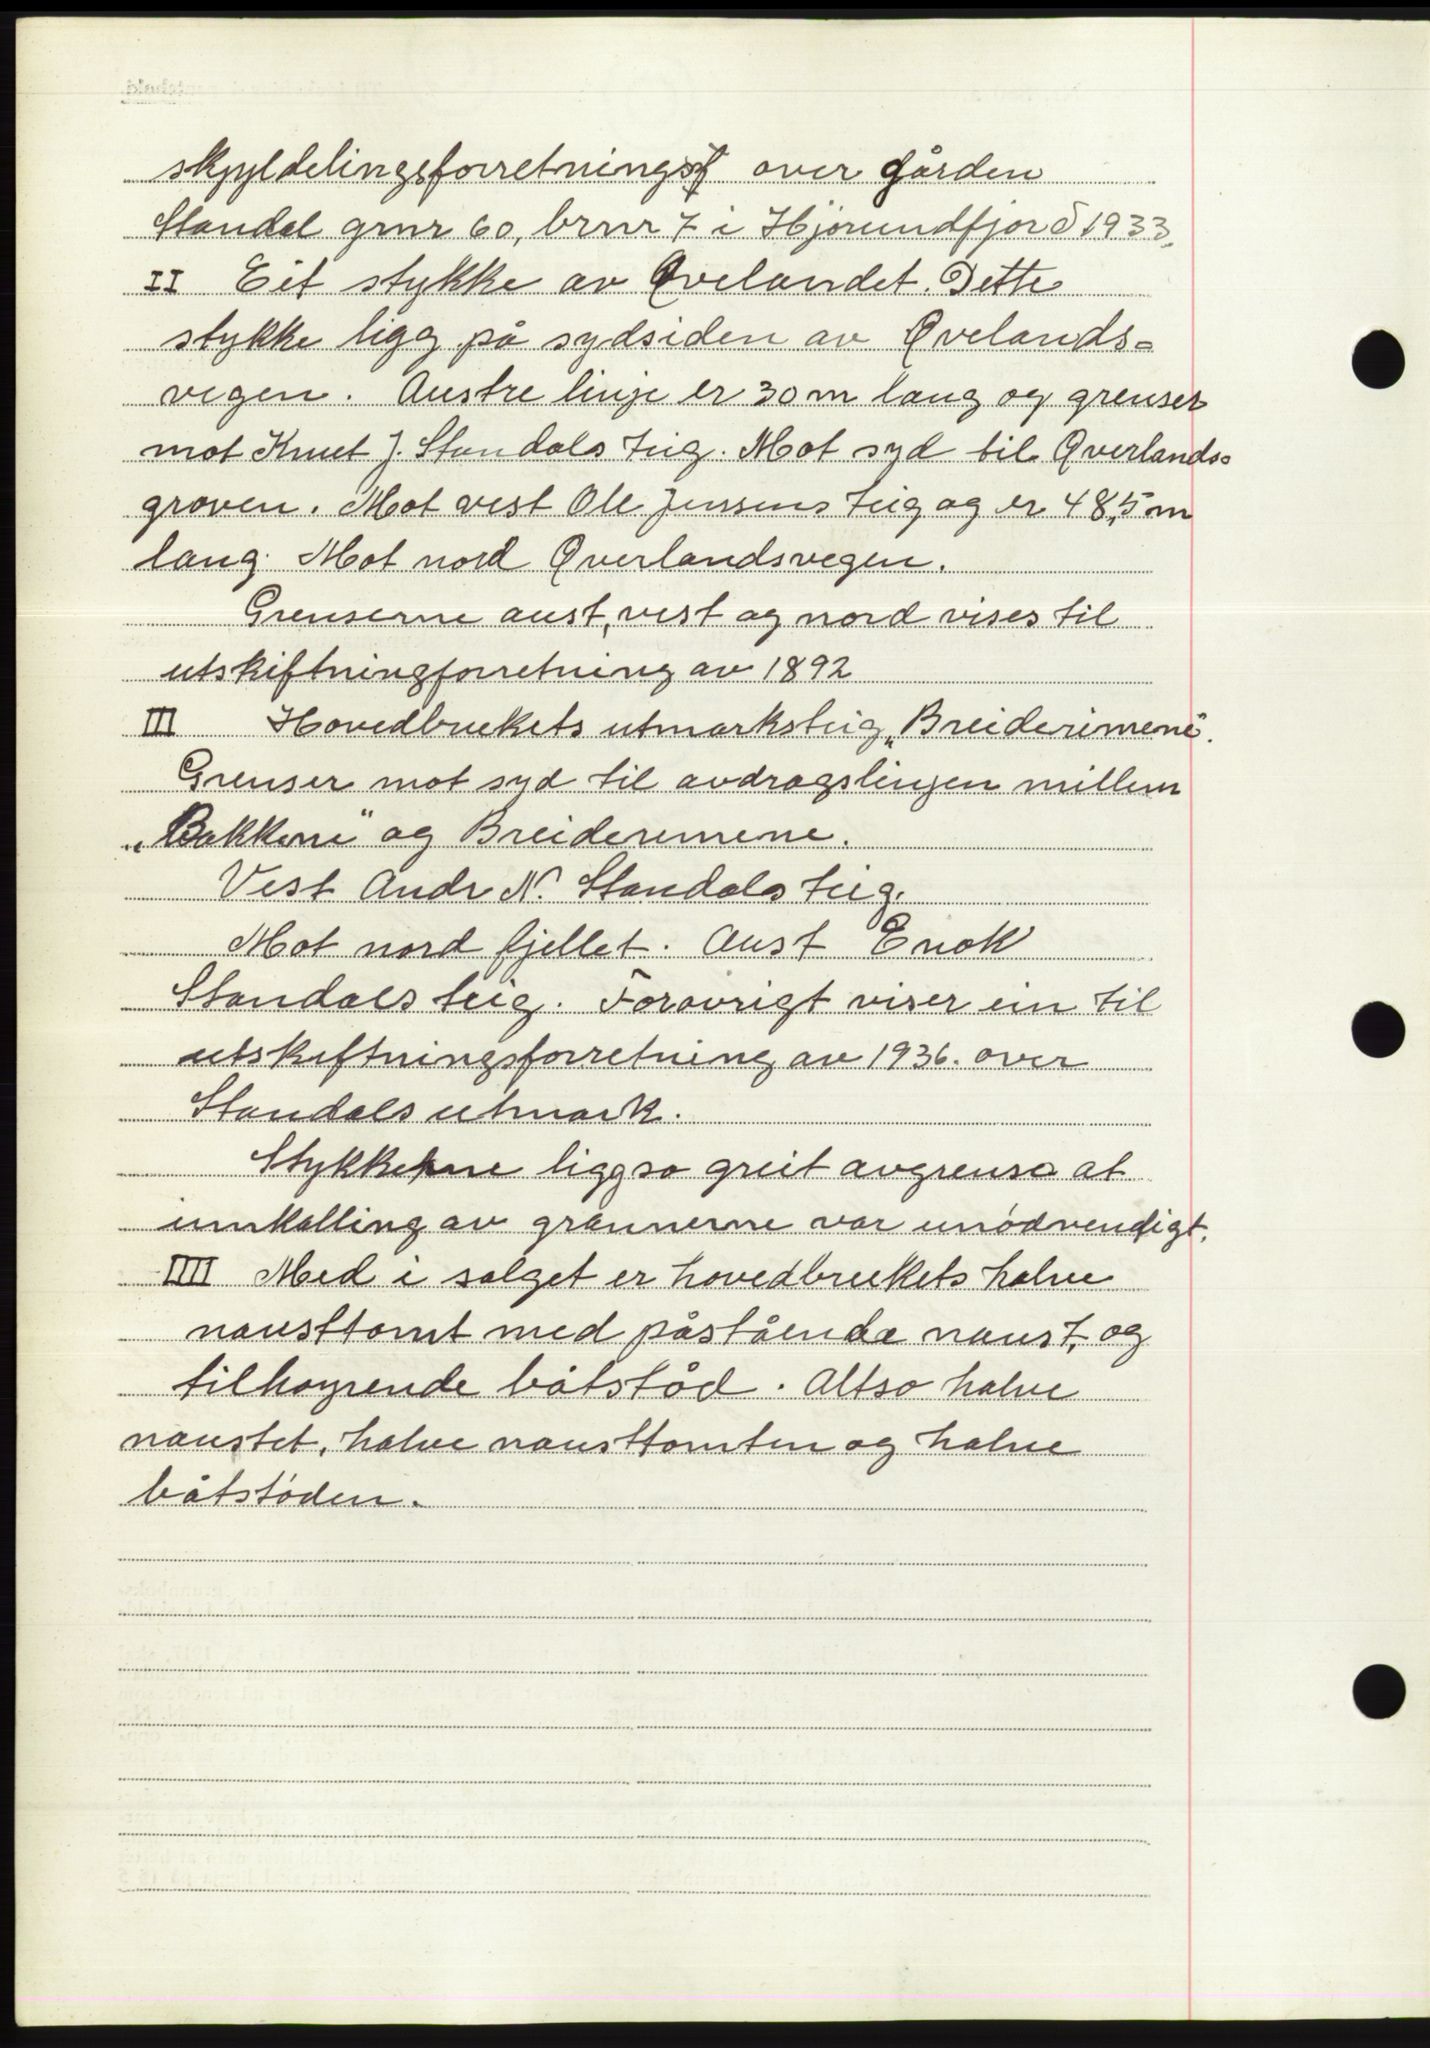 skyyldelingsforretnings over gården
Standal grnr 60, brnr 7 i Hjörundfjord 1933.
II Eit stykke av Øvelandet. Dette
stykke ligg på sydsiden av Øvelands-
vegen. Austre linje er 30 m lang og grenser
mot Knut J. Standals teig. Mot syd til Øverlands-
groven. Mot vest Ole Jenssens teig og er 48,5 m
lang. Mot nord Øverlandsvegen.
Grenserne aust, vest og nord vises til
utskiftningforretning av 1892
III Hovedbrukets utmarksteig „Breiderimene".
Grenser mot syd til avdragslinjen millem
„Bakkene" og Breiderimene.
Vest Andr N. Standals teig.
Mot nord fjellet. Aust Enok
Standals teig. Forøvrigt viser ein til
utskiftningsforretning av 1936. over
Standals utmark.
Stykkerne ligg so greit avgrensa at
innkalling av grannerne var unödvendigt.
IIII Med i salget er hovedbrukets halve
nausttomt med påståenda naust, og
tilhøyrende båtstød. Altso halve
naustet, halve nausttomten og halve
båtstöden.